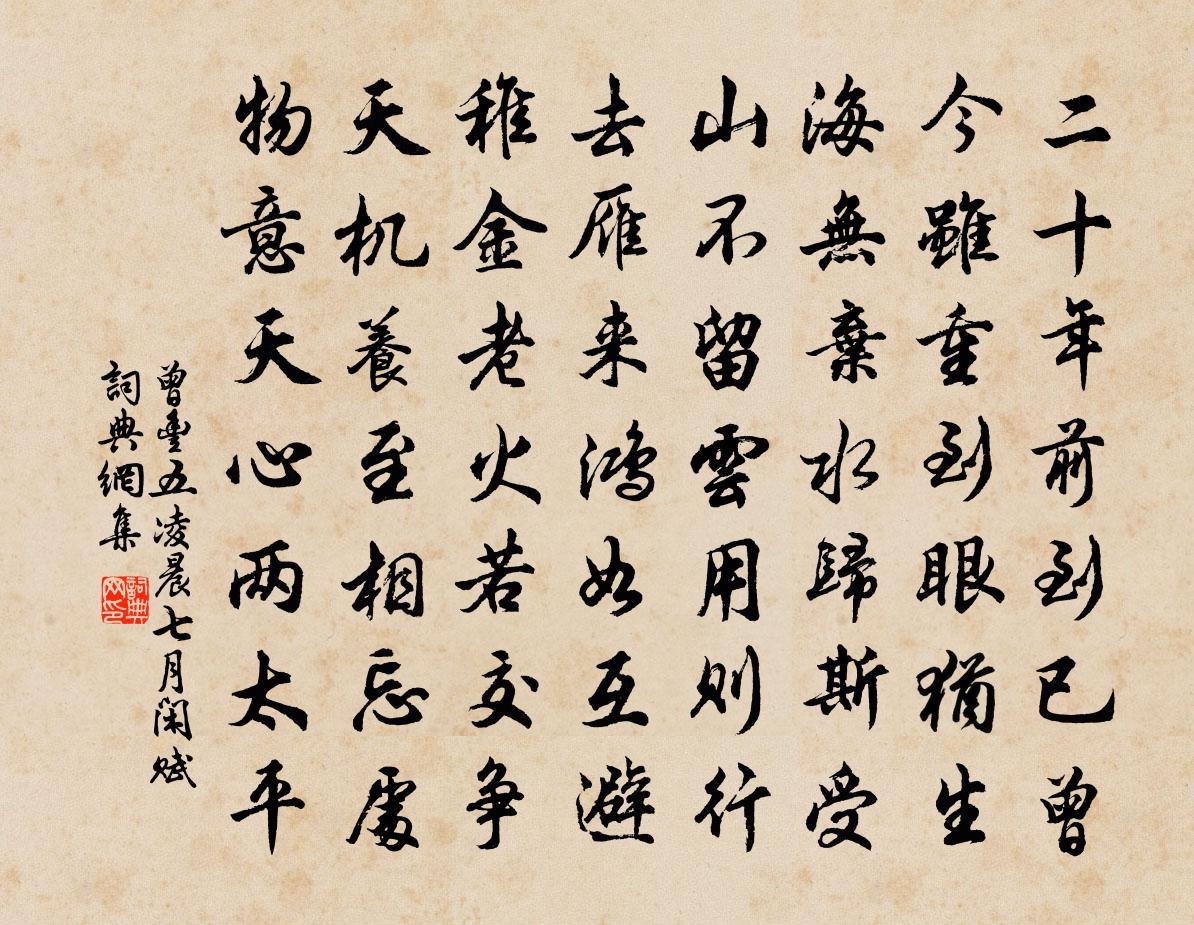 二十年前到已曾
今雖重到眼猶生
海無棄水歸斯受
山不留雲用則行
去雁来鴻如互避
稚金老火若交争
天机養至相忘處
物意天心两太平
曾豊五凌晨七月閑賦
詞典網集
詞典网印